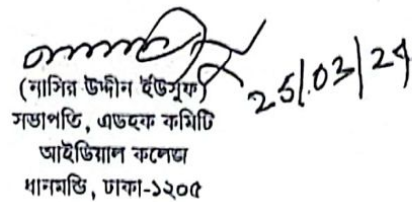 25/03/24
(নাসির উদ্দীন ইউসুফ)
সভাপতি, এডহক কমিটি
আইডিয়াল কলেজ
ধানমন্ডি, ঢাকা-১২০৫